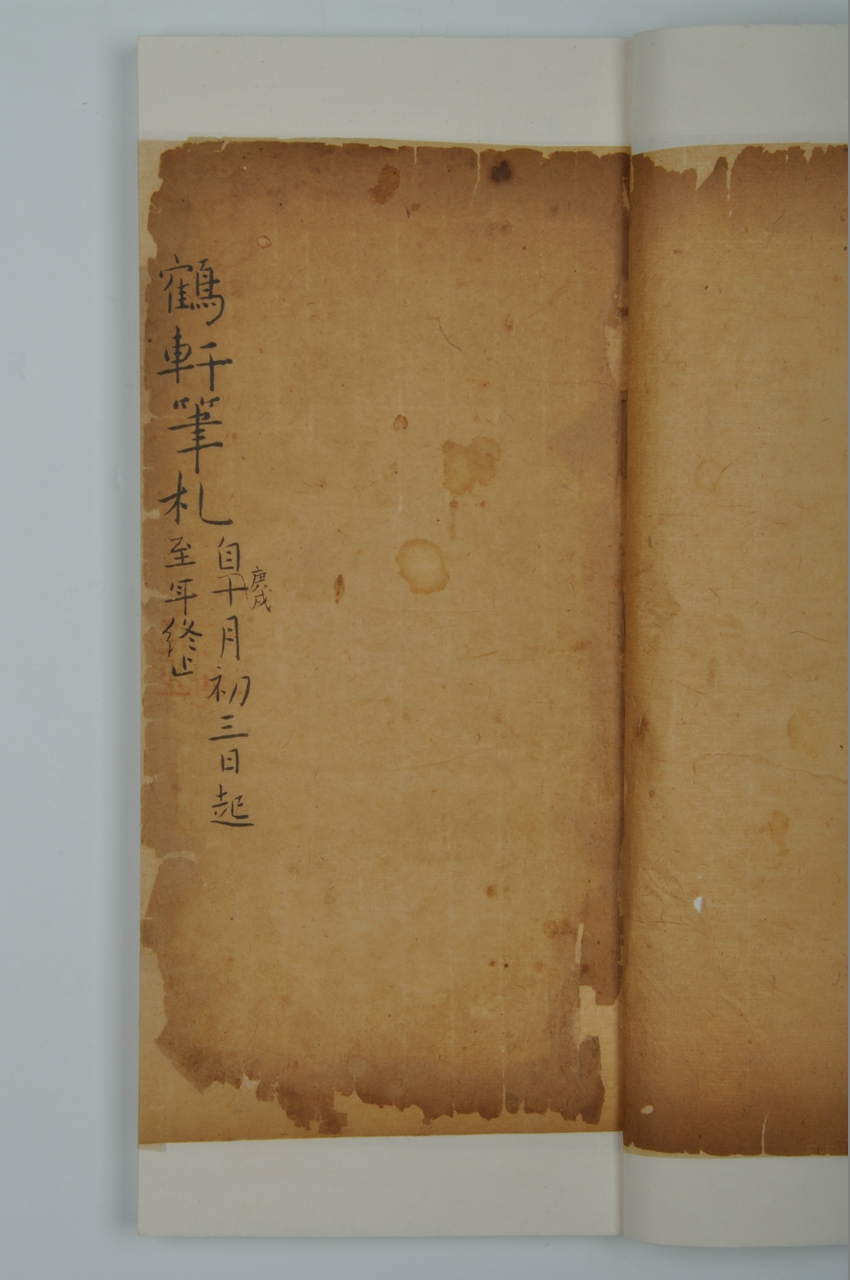 鶴軒筆札
自庚戌十月初三日起
至年終止